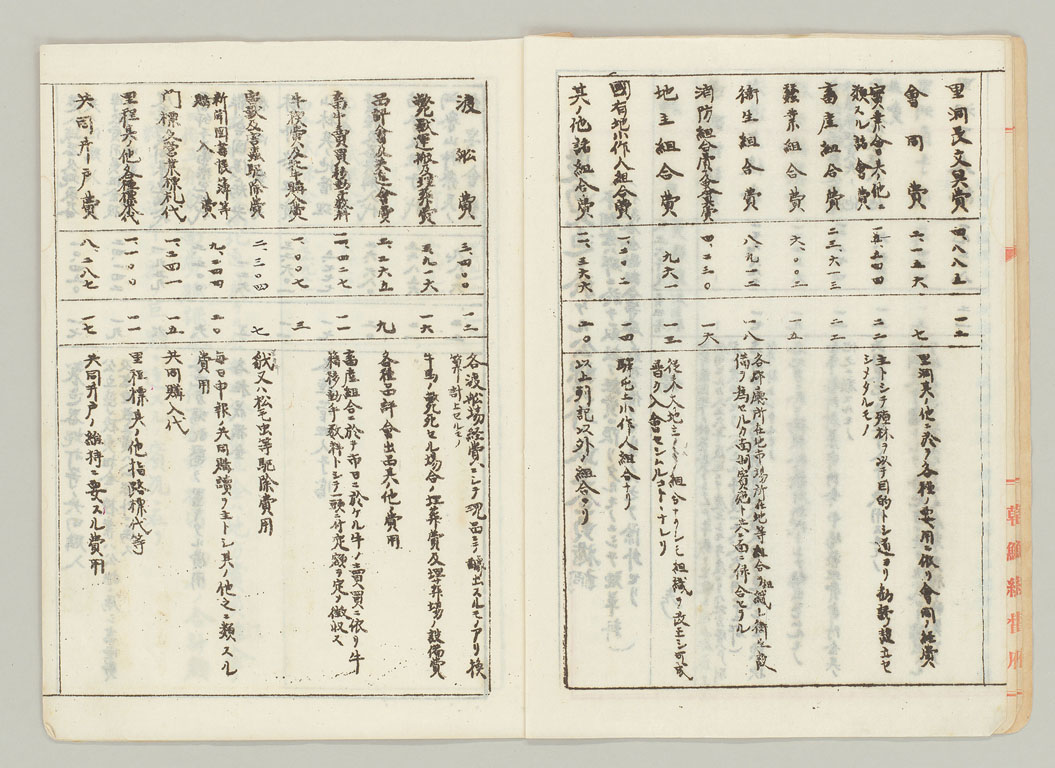 里洞長文具費 四、八八五 一二
會同費 二、一五六 七 里洞其ノ他ニ於ケル各種ノ要用ニ依リ會同ノ經費
實業會其他之ニ類スル諸會費 一五、五四四 二二 主トシテ殖林ヲ以テ目的トシ道ヨリ勸誘設立セシメタルモノ
畜産組合費 二三、六一三 二二
蠶業組合費 六、〇〇三 一五
衛生組合費 八、九一二 一八 各郡廳所在地市場所在地等組合ヲ組織シ衛生設備ヲ為セルカ面制實施ト共ニ面ニ併合セラル
消防組合費 四、二三〇 一六
地主組合費 九六一 一三 從來大地主ノミノ組合ナリシモ組織ヲ改正シ可成普ク入會セシムルコトトナレリ
國有地小作人組合費 一、二〇二 一四 驛屯土小作人組合ナリ
其ノ他諸組合費 二、三六六 一〇 以上列記以外ノ組合ナリ
渡船費 三、四〇〇 一二 各渡船場經費ニシテ現品ニテ醵出スルモノアリ換算計上セルモノ
斃獸運搬及埋葬費 五、九一六 一六 牛馬ノ斃死セル場合ノ埋葬費及埋葬場ノ設備費
品評會及共進會費 二、二六五 九 各種品評會出品其ノ他ノ費用
畜牛賣買移動手數料 二、四二七 二一 畜産組合ニ於テ市日ニ於ケル牛ノ賣買ニ依リ牛籍移動手數料トシテ一頭ニ付定額ヲ定メ徴收ス
牛疫費及 一、〇〇七 三
害獸及害蟲驅除費 二、三〇四 七 狼又ハ松毛虫等驅除費用
新聞圖書帳簿等購入費 九、一四四 二〇 每日申報ノ共同購讀ヲ主トシ其ノ他之ニ類スル費用
門標之草木標札代 一、二四一 一五 共同購入代
里程其ノ他各種標代 二、一〇〇 二一 里程標其ノ他指路標代等
共同井戸費 八、二八七 一七 共同井戸ノ維持ニ要スル費用
朝鮮總督府